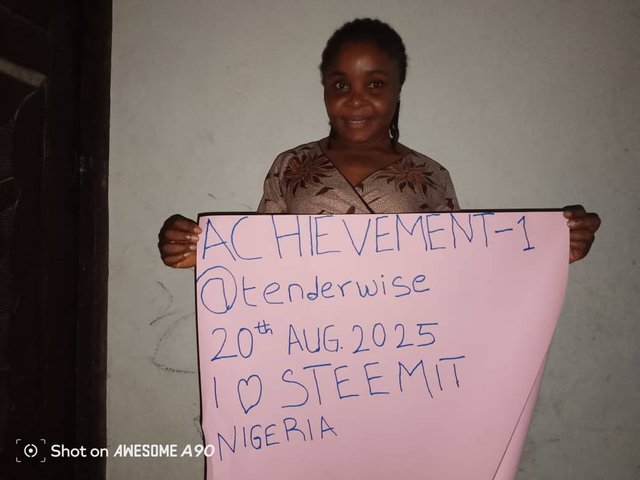 ACHIEVEMENT-1
@tenderwise
20th AUG. 2025
I ♡ STEEMIT
NIGERIA
Shot on AWESOME A90